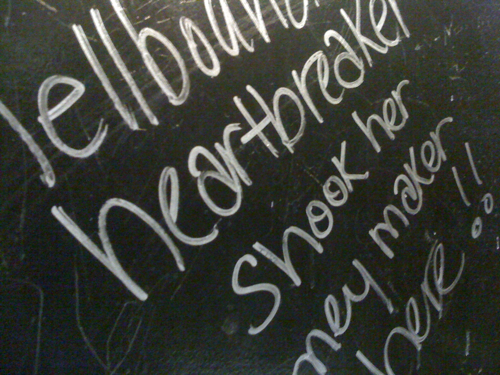 hellbound
heartbreaker
shook her
money maker
here!!